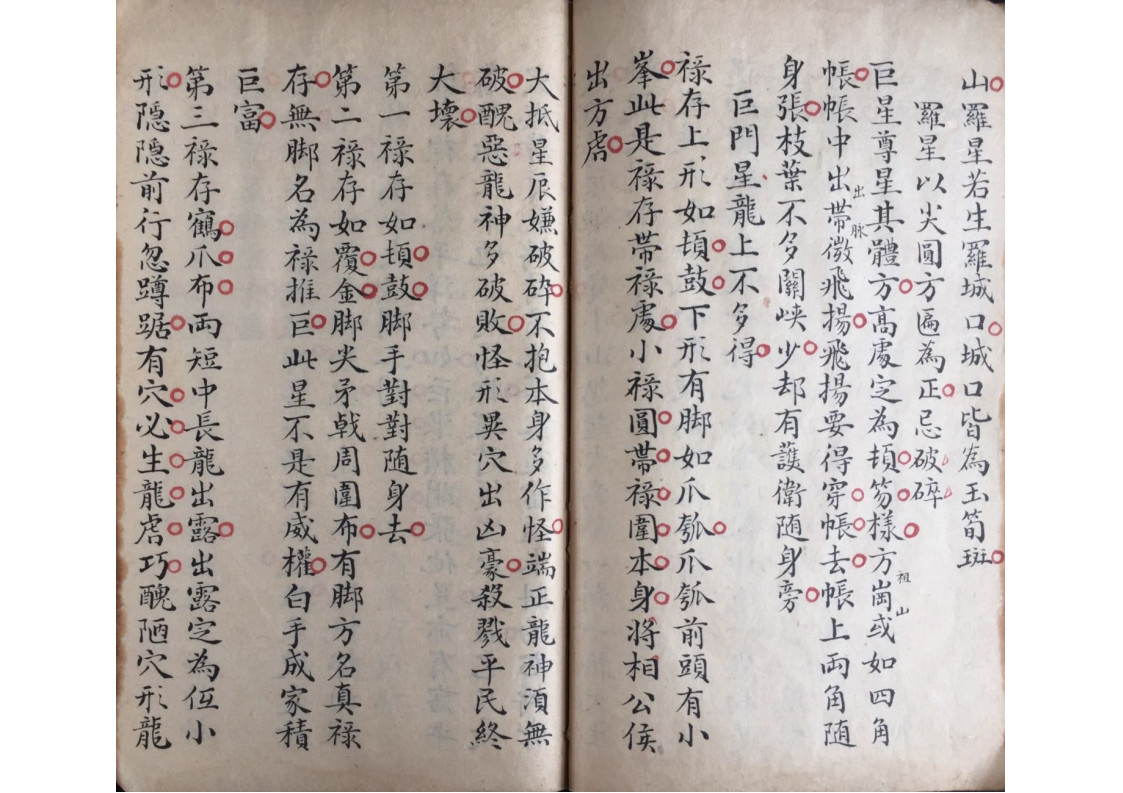 山羅星若生羅城口城口皆為玉筍班
羅星以尖圓方匾為正忌破碎
巨星尊星其體方高處定為頓笏樣方崗或如四角
祖山
帳帳中出帶微飛揚飛揚要得穿帳去帳上両角随
出脉
身張枝葉不多關峽少却有護衛随身旁
巨門星龍上不多得
禄存上形如頓鼓下形有脚如爪瓠爪瓠前頭有小
峯此是禄存帶禄處小禄圓帶禄圍本身将相公侯
出方虎
大抵星辰嫌破砕不抱本身多作怪端正龍神須無
破醜惡龍神多破敗怪形異穴出凶豪殺戮平民終
大壞
第一禄存如頓鼓脚手對對随身去
第二禄存如覆金脚尖矛戟周圍布有脚方名真禄
存無脚名為禄推巨此星不是有威權白手成家積
巨富
第三禄存鶴爪布両短中長龍出露出露定為伍小
形隠隠前行忽蹲踞有穴必生龍虎巧醜陋穴形龍